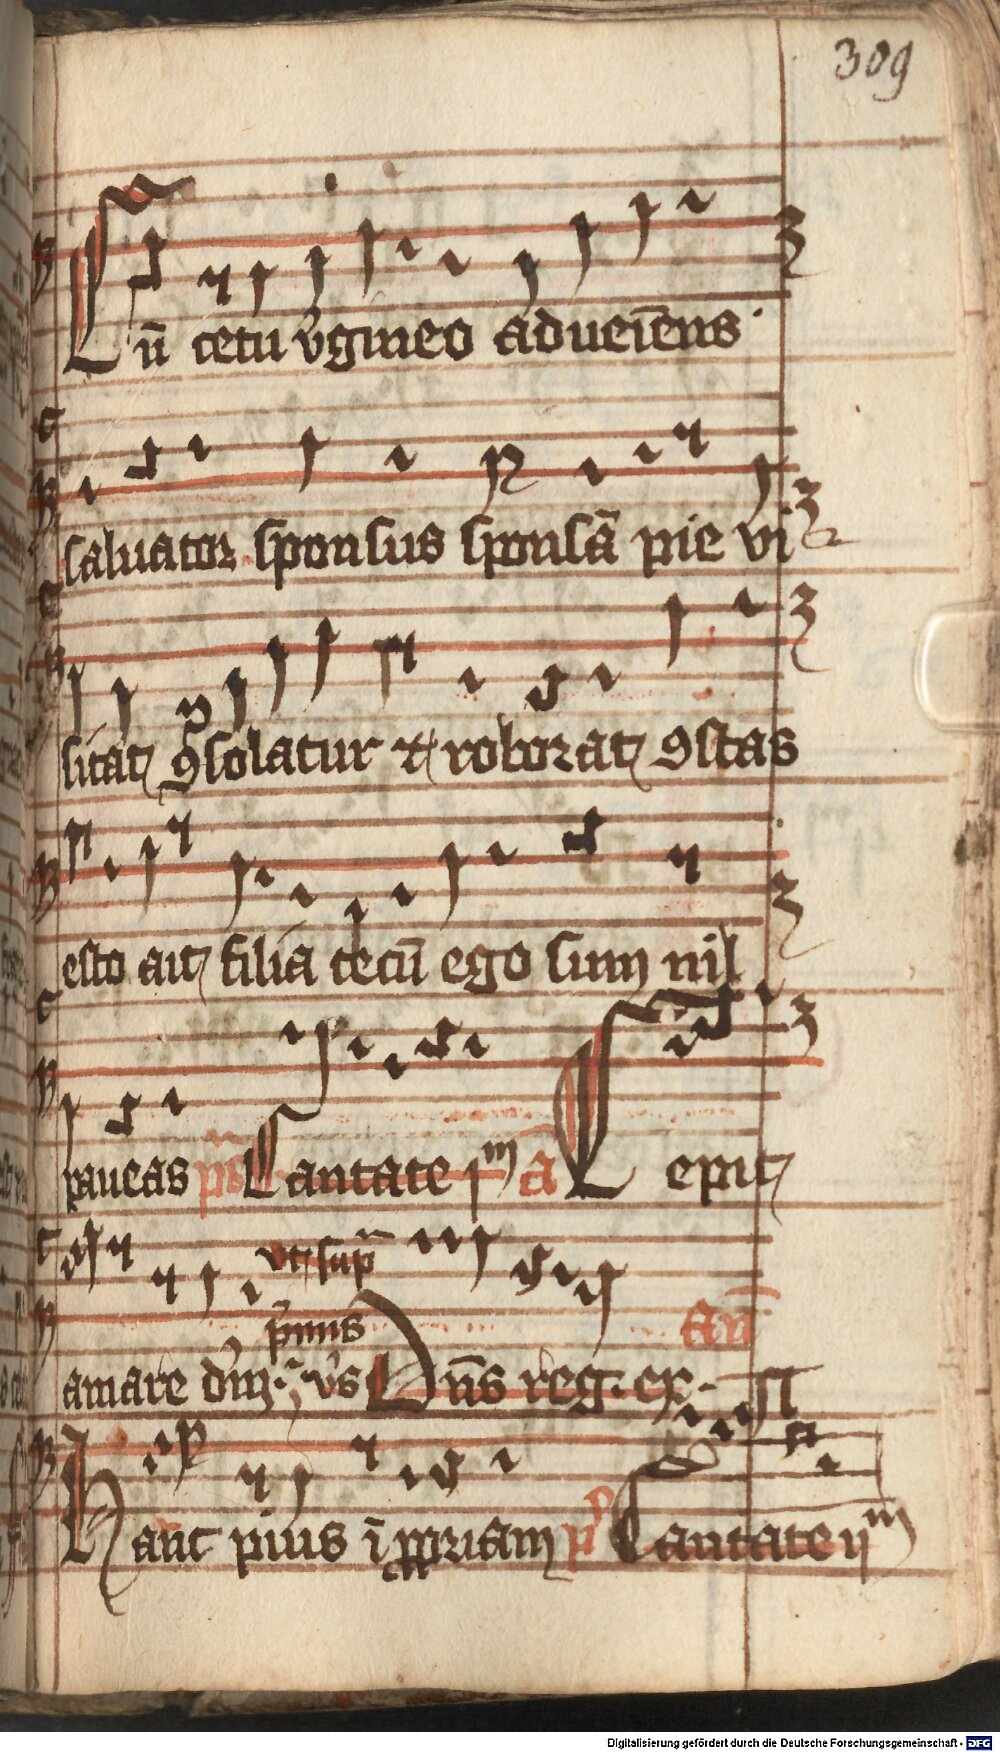 309
Cū cetu v̓gineo adueīens
saluator sponsus sponsā pie vi
sitat ꝯsolatur et roborat ꝯstas
esto ait filia tecū ego sum nil
paueas ps̄ Cantate jᵐ a Cepit
vt sup̄
p̄mus an̄
amare dn̄ vs̓ Dn̄s reg. ex.
Hanc pius ī ppriam p̓ Cantate ijᵐ
Digitalisierung gefördert durch die Deutsche Forschungsgemeinschaft - DFG